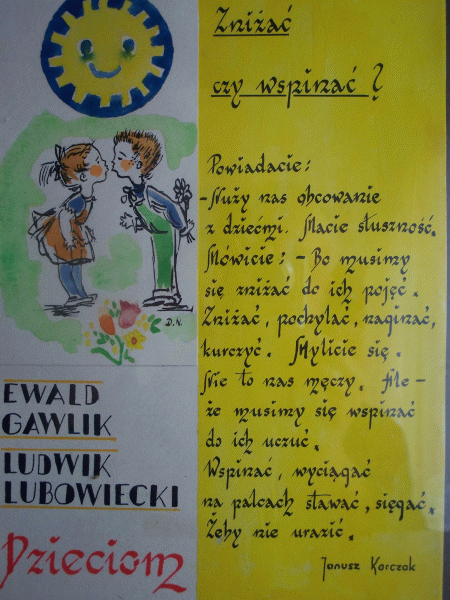 Zniżać
czy wspinać ?
Powiadacie:
-Nuży nas obcowanie
z dziećmi. Macie słuszność.
Mówicie: - Bo musimy
się zniżać do ich pojęć.
Zniżać, pochylać, naginać,
kurczyć. Mylicie się.
Nie to nas męczy. Ale -
że musimy się wspinać
do ich uczuć.
Wspinać, wyciągać
na palcach stawać, sięgać.
Żeby nie urazić.
Janusz Korczak
D.N.
EWALD
GAWLIK
LUDWIK
LUBOWIECKI
Dzieciom